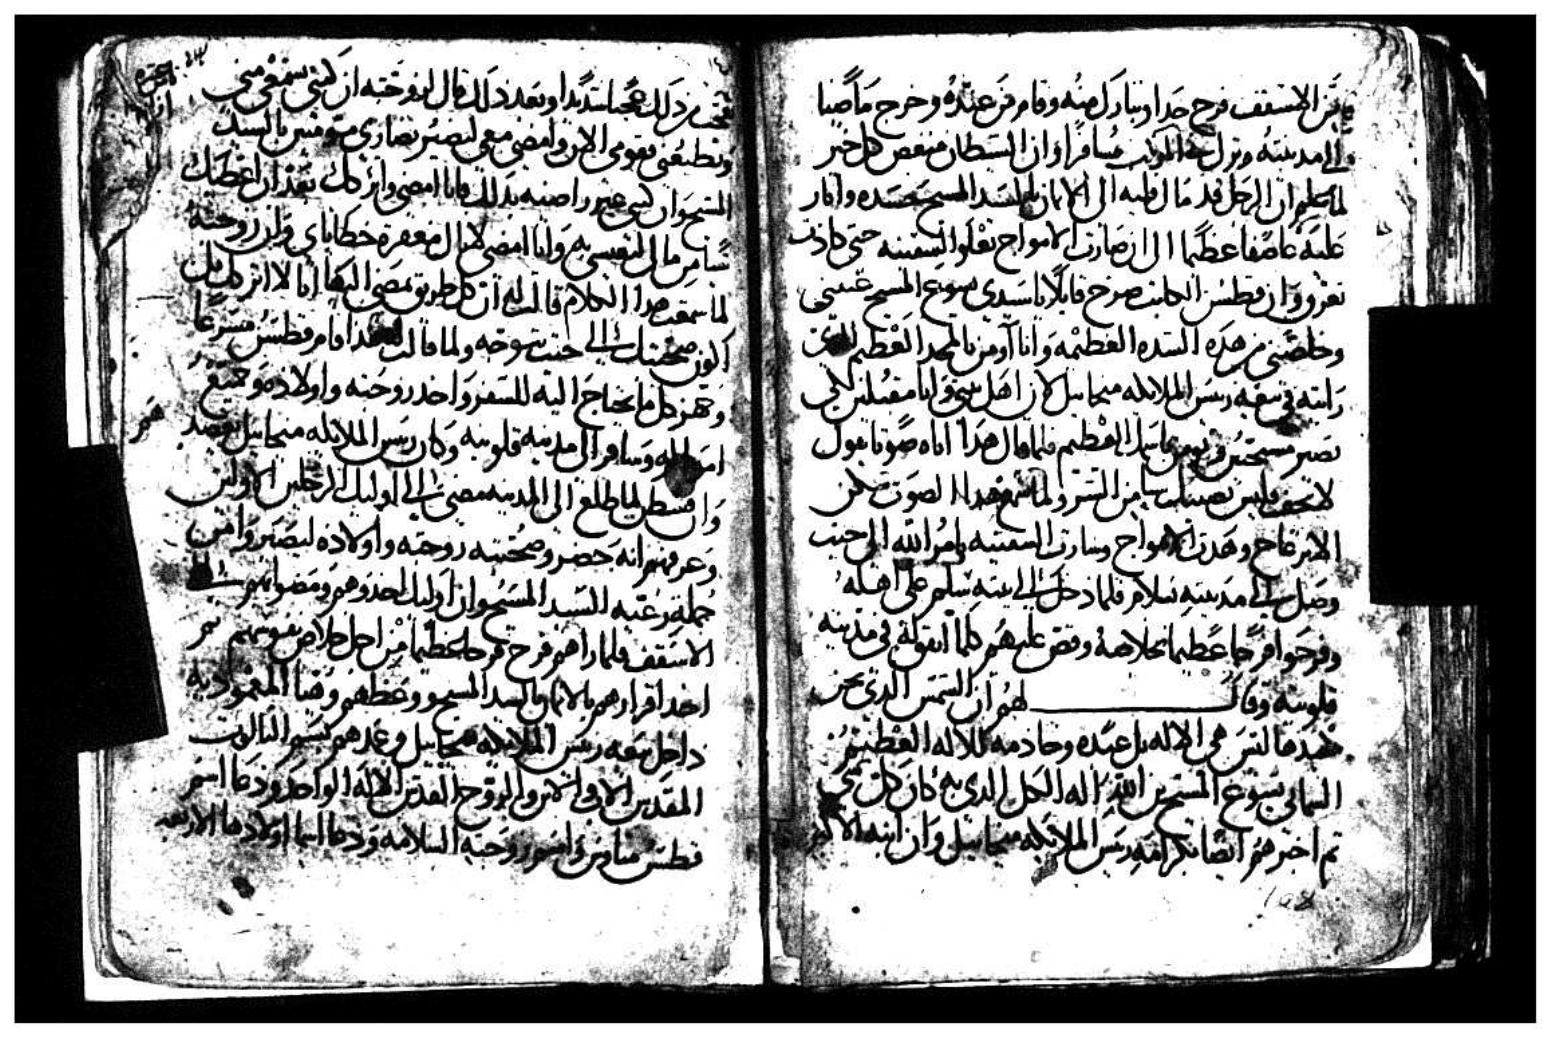 من الاسقف فرح جدا وتبارك منه وقام من عنده وخرج ماضيا
الى مدينته ونزل في المركب مسافرا وان الشيطان مبغض كل خير
لما علم ان الرجل قد مال قلبه الى الايمان بالسيد المسيح حسده واثار
عليه عاصفا عظيما الى ان صارت الامواج تعلوا السفينه حتى كادت
تغرق وان قطسن الكاتب صرخ قايلا يا سيدي يسوع المسيح عينني
وخلصني من هذه الشده العظيمه وانا اومن بالمجد العظيم الذي
رايته في بيعه رييس الملايكه ميخاييل لان اهل بيتي وانا مقبلين لكي
نصير مسيحيين فلما قال هذا اتاه صوتا يقول
لا تخف فليس يصيبك شيا من الشر ولما سمع هذا الصوت سكن
الارتجاج وهدت الامواج وسارت السفينه بامر الله الى حيث
وصل الى مدينته بسلام فلما دخل الى بيته سلم على اهله
وفرحوا فرحا عظيما بخلاصه وقص عليهم كلما اتفق له في مدينه
قلونيه وقال لهم ان الشمس الذي نحن
نعبدها ليس هي الاله بل عبده وخادمه للاله العظيم
السماي يسوع المسيح بن الله اله الكل الذي به كان كل شي
ثم اخبرهم ايضا بكرامه رييس الملايكه ميخاييل وان ابنه الاكبر
تعجب من ذلك عجبا شديدا وبعد ذلك قال لزوجته ان كنتي تسمعي مني
وتطيعني فقومي الان وامضي معي لنصير نصارى مومنين بالسيد
المسيح وان كنتي غير راضيه بذلك فانا امضي واتركك بعد ان اعطيك
شيا من مال لنفسي به وانا امضي لانال مغفره خطاياي وان زوجته
لما سمعت هذا الكلام قالت له ان كل طريق تمضي اليها انا لا اترك بل
اكون صحبتك الى حيث تتوجه ولما قالت هذا قام قطسن مسرعا
وجهز كل ما يحتاج اليه للسفر واخذ زوجته واولاده وجميع
امواله وسافر الى مدينه قلونيه وكان رييس الملايكه ميخاييل يعضد
وان قطسن لما طلع الى المدينه مضى الى اوليك الرجلين الاولين
وعرفهم انه حضر وصحبته زوجته واولاده ليصيروا من
جمله رعيه السيد المسيح وان اوليك اخذوهم ومضوا بهم الى
الاسقف فلما راهم فرح فرحا عظيما من اجل خلاص نفوسهم ثم
اخذ اقرارهم بالايمان بالسيد المسيح ووعظهم وهيا المعموديه
داخل بيعه رييس الملايكه ميخاييل وعمدهم بسم الثالوث
المقدس الاب والابن والروح القدس الاله الواحد ودعا اسم
قطسن متاوس واسم زوجته السلامه ودعا اسما اولادها الاربعه